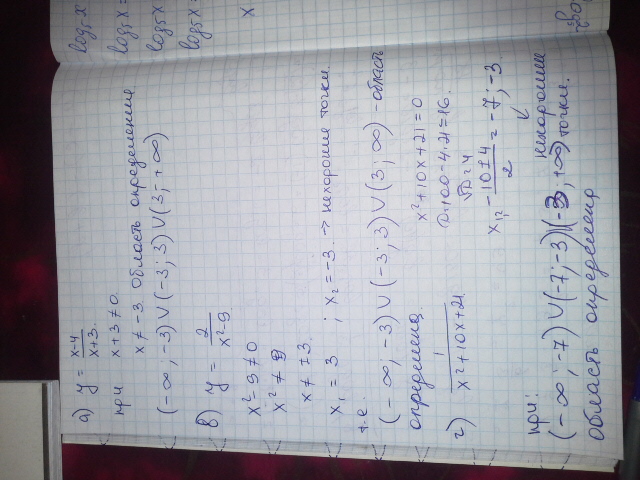 а) y = x-4/x+3.
при x+3≠0
x≠-3 Область определения
(-∞; -3) ∪ (-3; 3) ∪ (3; +∞)
в) y = 2/x²-9
x²-9≠0
x²≠9
x≠±3.
x₁=3 ; x₂=-3. → нехорошие точки.
т.е.
(-∞; -3) ∪ (-3; 3) ∪ (3; ∞) - область
определения.
г) 1/x²+10x+21
x²+10x+21=0
D=100-4·21=16.
√D=4
x₁,₂ = -10±4/2 = -7; -3
нехорошие
точки.
при:
(-∞; -7) ∪ (-7; -3) (-3; +∞)
область определения
log₅x
log₅x =
log₅x
log₅x =
x